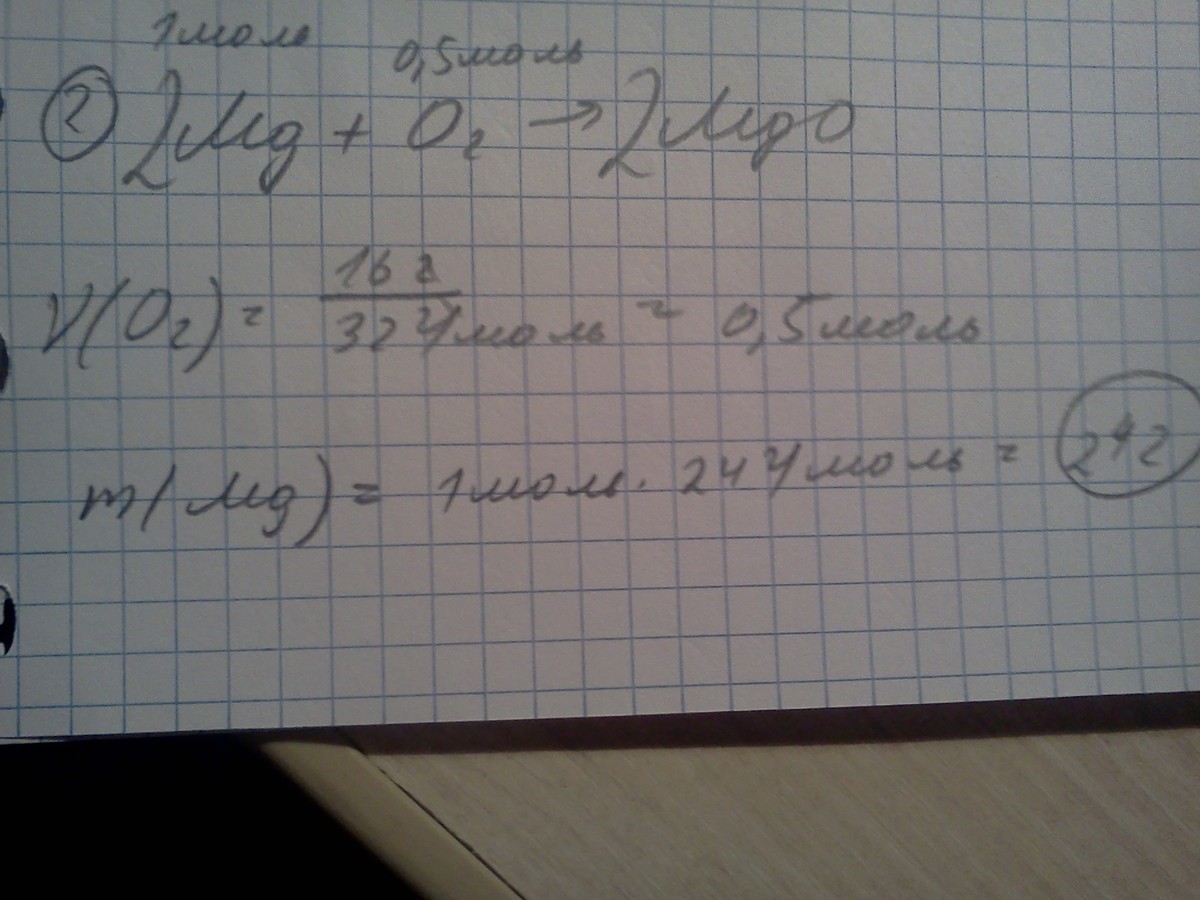 1 моль 0,5 моль
② 2Mg + O₂ → 2MgO
ν(O₂) = 16 г / 32 г/моль = 0,5 моль
m(Mg) = 1 моль · 24 г/моль = 24г